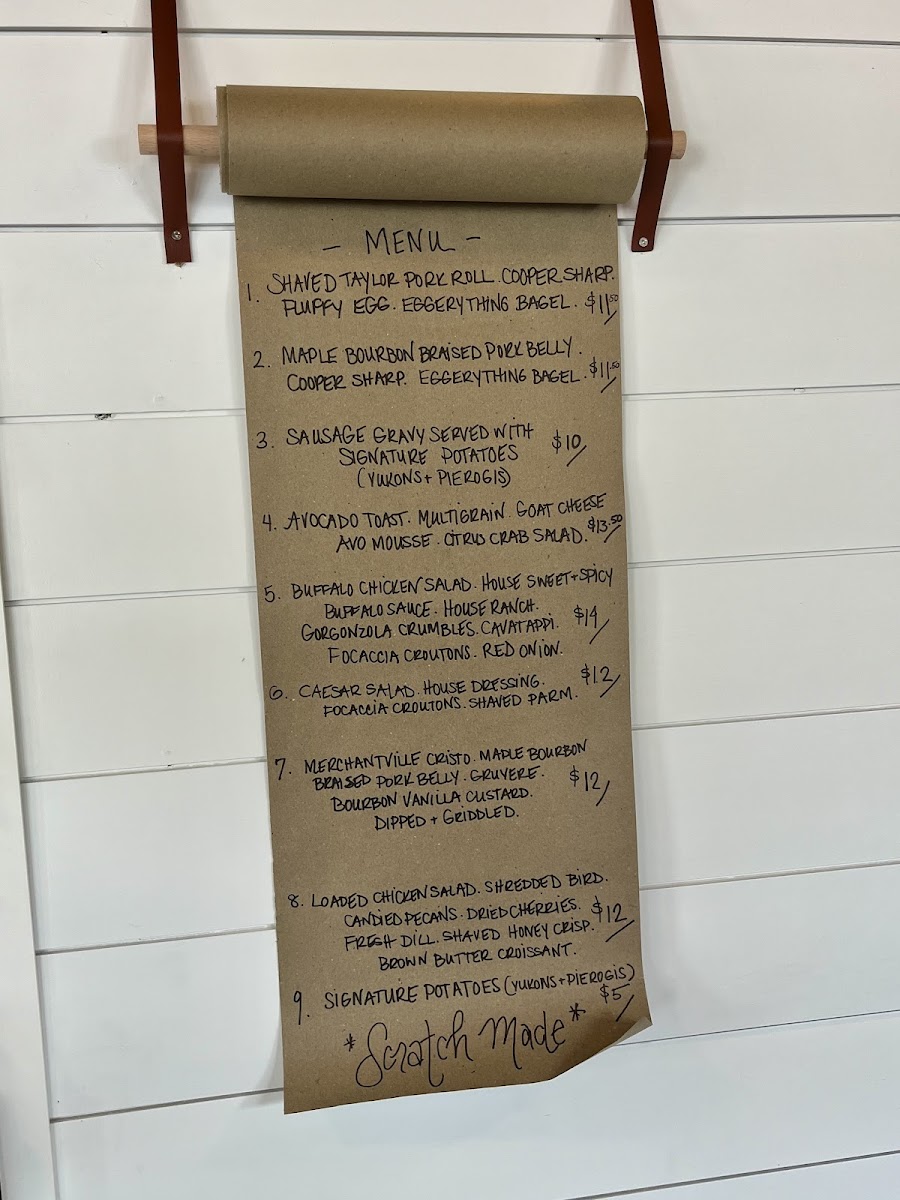 - MENU -
1. SHAVED TAYLOR PORK ROLL. COOPER SHARP.
FLUFFY EGG. EGGERYTHING BAGEL. $11.50
2. MAPLE BOURBON BRAISED PORK BELLY.
COOPER SHARP. EGGERYTHING BAGEL. $11.50
3. SAUSAGE GRAVY SERVED WITH
SIGNATURE POTATOES $10
(YUKONS + PIEROGIS)
4. AVOCADO TOAST. MULTIGRAIN. GOAT CHEESE
AVO MOUSSE. CITRUS CRAB SALAD. $13.50
5. BUFFALO CHICKEN SALAD. HOUSE SWEET + SPICY
BUFFALO SAUCE. HOUSE RANCH.
GORGONZOLA CRUMBLES. CAVATAPPI. $14
FOCACCIA CROUTONS. RED ONION.
6. CAESAR SALAD. HOUSE DRESSING. $12
FOCACCIA CROUTONS. SHAVED PARM.
7. MERCHANTVILLE CRISTO. MAPLE BOURBON
BRAISED PORK BELLY. GRUYERE. $12
BOURBON VANILLA CUSTARD.
DIPPED + GRIDDLED.
8. LOADED CHICKEN SALAD. SHREDDED BIRD.
CANDIED PECANS. DRIED CHERRIES. $12
FRESH DILL. SHAVED HONEY CRISP.
BROWN BUTTER CROISSANT.
9. SIGNATURE POTATOES (YUKONS + PIEROGIS)
$5
*Scratch Made*